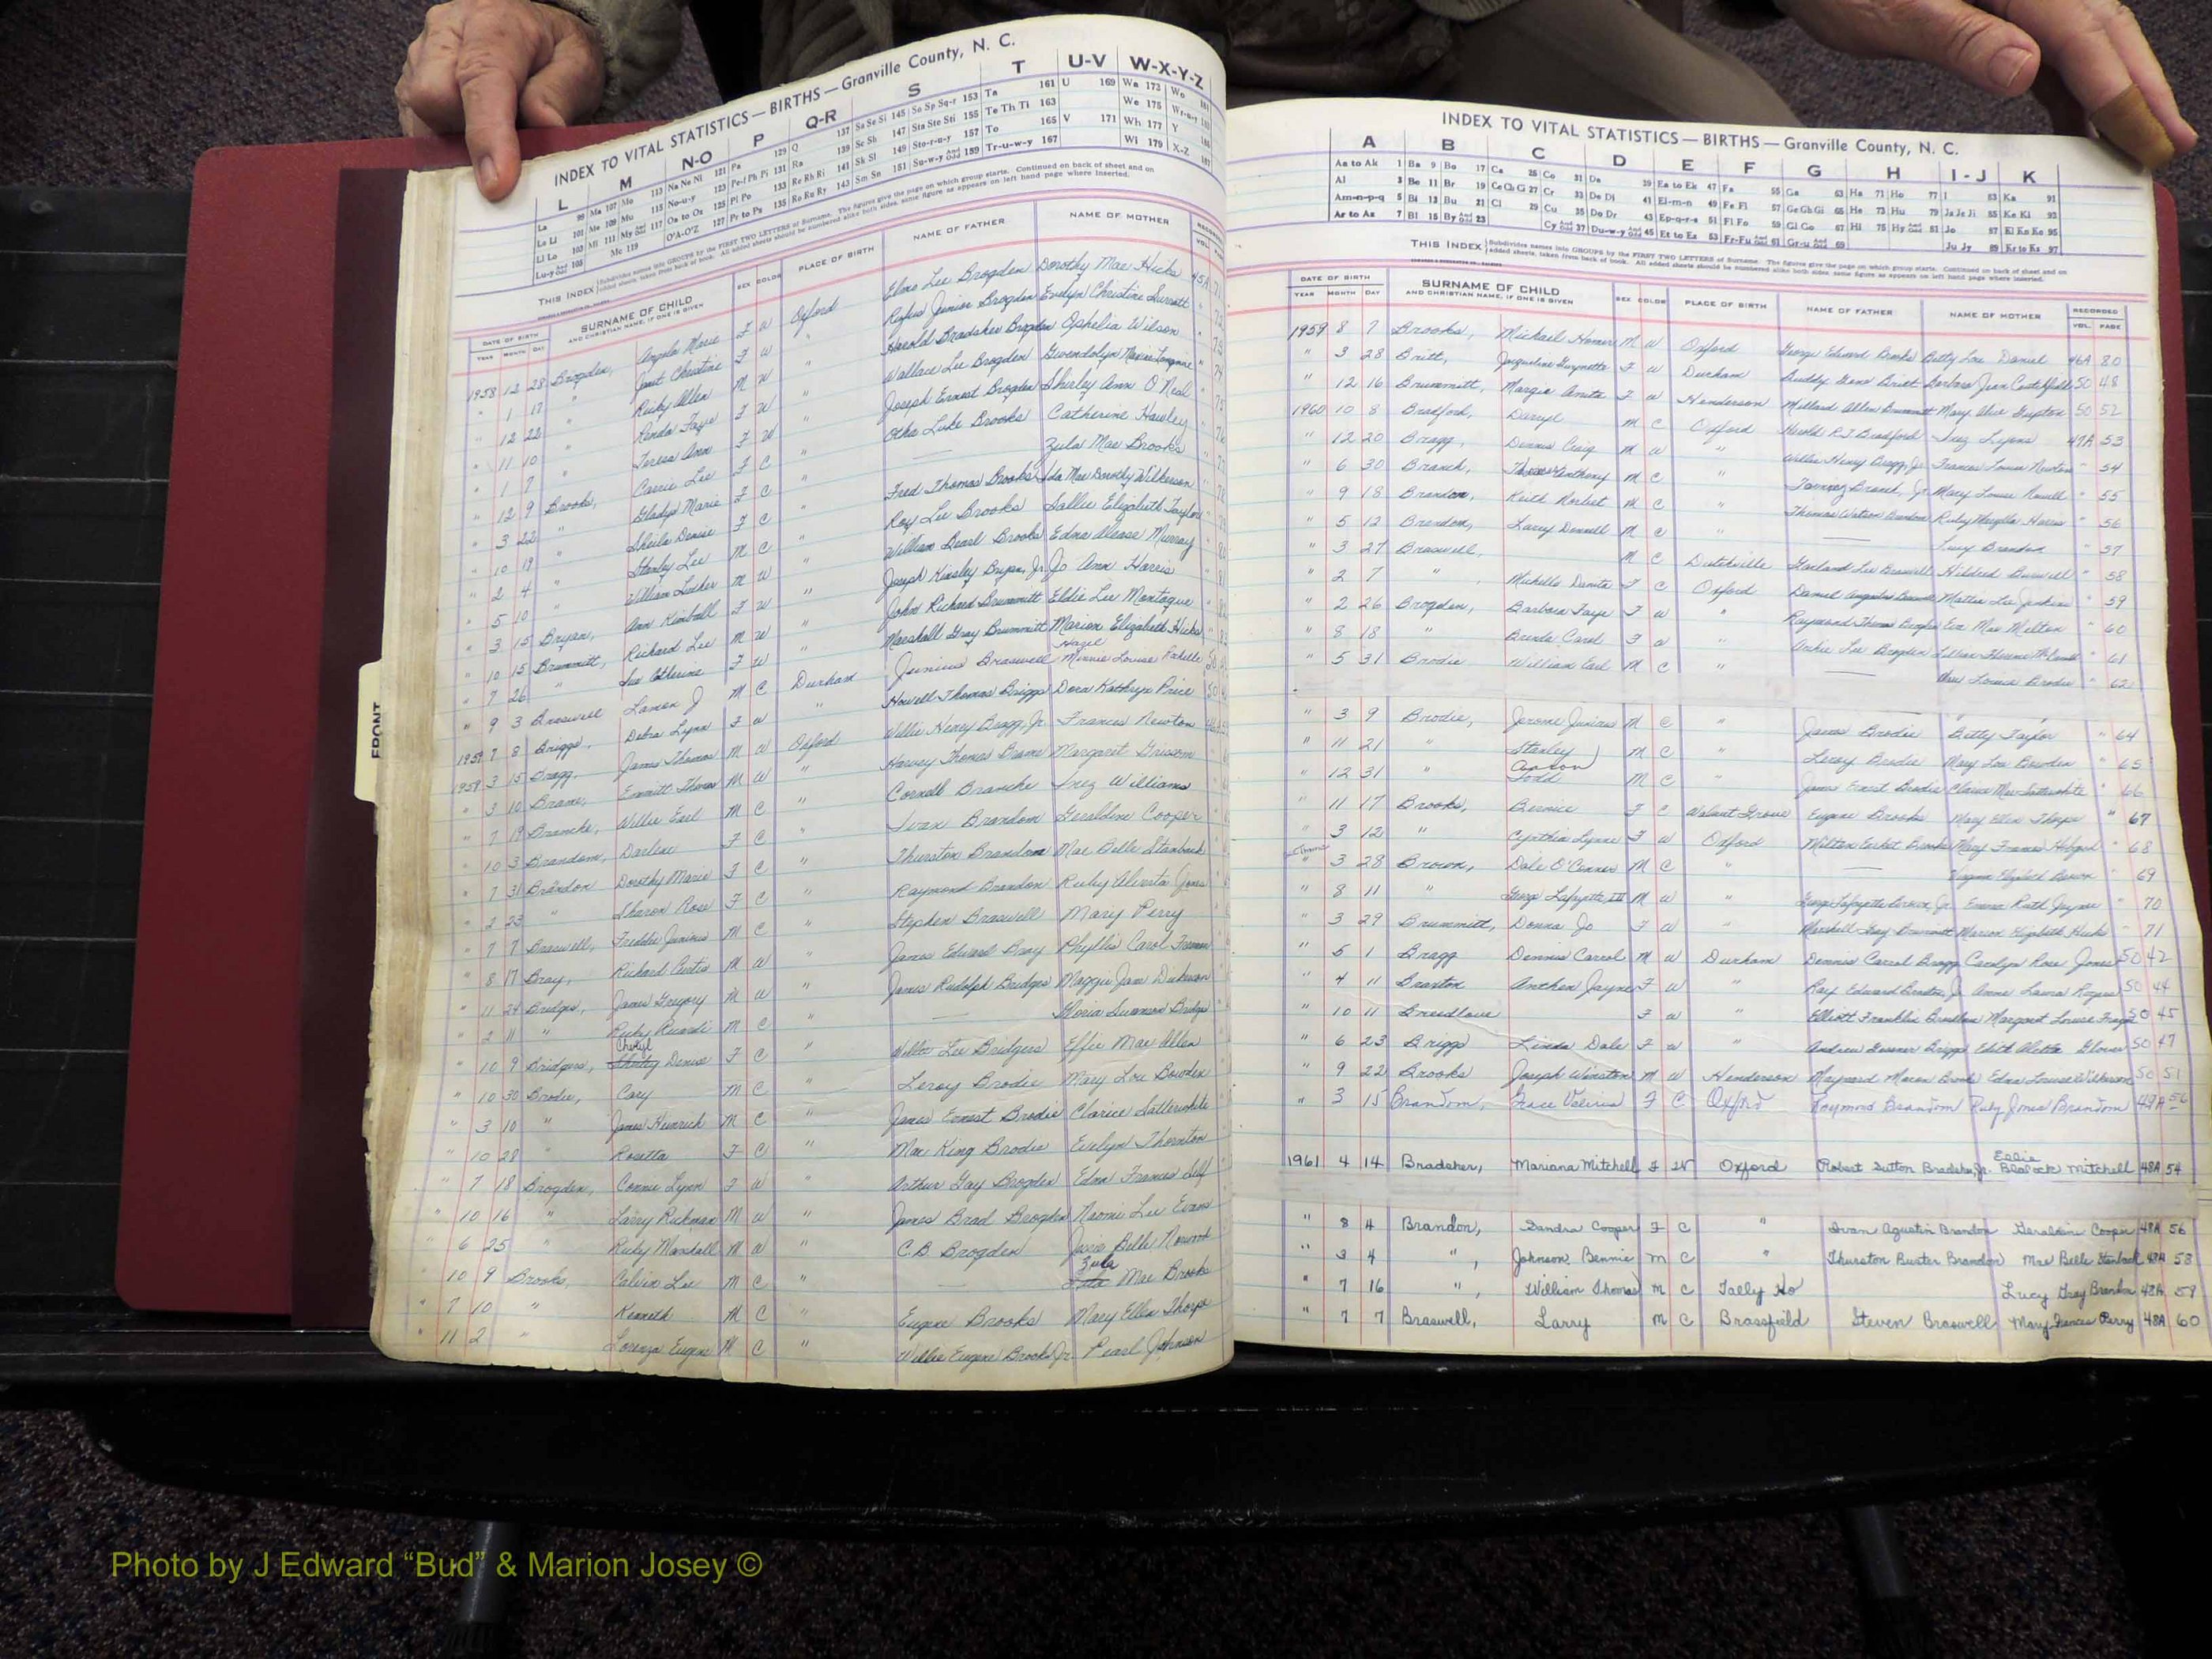 INDEX TO VITAL STATISTICS — BIRTHS — Granville County, N. C.
L M N-O P Q-R S T U-V W-X-Y-Z
THIS INDEX Subdivides names into GROUPS by the FIRST TWO LETTERS of Surname. The figures give the page on which group starts. Continued on back of sheet and on
added sheets, taken from back of book. All added sheets should be numbered alike both sides, same figure as appears on left hand page where inserted.
DATE OF BIRTH SURNAME OF CHILD SEX COLOR PLACE OF BIRTH NAME OF FATHER NAME OF MOTHER
YEAR MONTH DAY AND CHRISTIAN NAME, IF ONE IS GIVEN
1958 12 28 Brogden, Angela Marie F W Oxford Elmo Lee Brogden Dorothy Mae Hicks
" 1 17 " Janet Christine F W " Rufus Junior Brogden Evelyn Christine
" 12 22 " Ricky Allen M W " Harold Bradsher Brogden Ophelia Wilson
" 11 10 " Renda Faye F W " Wallace Lee Brogden Gwendolyn
" 1 7 " Teresa Ann F W " Joseph Ernest Brogden Shirley Ann O'Neal
" 12 9 Brooks, Carrie Lee F C " Otha Luke Brooks Catherine Hawley
" 3 22 " Gladys Marie F C " — Zula Mae Brooks
" 10 19 " Sheila Denise F C " Fred Thomas Brooks Ida Mae Dorothy Wilkerson
" 2 4 " Stanley Lee M C " Roy Lee Brooks Sallie Elizabeth Taylor
" 5 10 " William Luther M W " William Pearl Brooks Edna Alease Murray
" 3 15 Bryan, Ann Kimball F W " Joseph Kinsley Bryan, Jr. Jo Ann Harris
" 10 15 Brummitt, Richard Lee M W " John Richard Brummitt Eldie Lee Montague
" 7 26 " Sue Catherine F W " Marshall Gray Brummitt Marion Elizabeth Hicks
" 9 3 Braswell Lamon J M C Durham Junious Braswell Hazel Minnie Louise
1959 7 8 Briggs, Debra Lynn F W " Howell Thomas Briggs Dora Kathryn Price
1959 3 15 Bragg, James Thomas M W Oxford Willie Henry Bragg, Jr. Frances Newton
" 3 10 Brame, Emmitt Thomas M W " Harvey Thomas Brame Margaret Grissom
" 7 19 Branche, Willie Earl M C " Cornell Branche Inez Williams
" 10 3 Brandom, Darlene F C " Ivan Brandom Geraldine Cooper
" 7 31 Brandon Dorothy Marie F C " Thurston Brandom Mae Belle Stanback
" 2 23 " Sharon Rose F C " Raymond Brandon Ruby Alverta Jones
" 7 7 Braswell, Freddie Junious M C " Stephen Braswell Mary Perry
" 8 17 Bray, Richard Curtis M W " James Edward Bray Phyllis Carol
" 11 24 Bridges, James Gregory M W " James Rudolph Bridges Maggie Jane Dickerson
" 2 11 " Ricky Ricardi M C " — Gloria Bridges
" 10 9 Bridgers, Cheryl Denise F C " Willie Lee Bridgers Effie Mae Allen
" 10 30 Brodie, Cary M C " Leroy Brodie Mary Lou Bowden
" 3 10 " James Heinrich M C " James Ernest Brodie Clarice Satterwhite
" 10 28 " Rosetta F C " Mac King Brodie Evelyn Thornton
" 7 18 Brogden, Connie Lynn F W " Arthur Gay Brogden Edna Frances Self
" 10 16 " Larry Rickman M W " James Brad Brogden Naomi Lee Evans
" 6 25 " Ricky Marshall M W " C.B. Brogden Jessie Belle Norwood
" 10 9 Brooks, Calvin Lee M C " — Zula Mae Brooks
" 7 10 " Kenneth M C " Eugene Brooks Mary Ellen Thorpe
" 11 2 " Lorenza Eugene M C " Willie Eugene Brooks Jr. Pearl Johnson
FRONT
INDEX TO VITAL STATISTICS — BIRTHS — Granville County, N. C.
A B C D E F G H I-J K
THIS INDEX Subdivides names into GROUPS by the FIRST TWO LETTERS of Surname. The figures give the page on which group starts. Continued on back of sheet and on
added sheets, taken from back of book. All added sheets should be numbered alike both sides, same figure as appears on left hand page where inserted.
DATE OF BIRTH SURNAME OF CHILD SEX COLOR PLACE OF BIRTH NAME OF FATHER NAME OF MOTHER RECORDED
YEAR MONTH DAY AND CHRISTIAN NAME, IF ONE IS GIVEN VOL. PAGE
1959 8 7 Brooks, Michael Homer M W Oxford George Edward Brooks Betty Lou Daniel 46A 80
" 3 28 Britt, Jacqueline Gwynette F W Durham Buddy Gene Britt Barbara Jean Crutchfield 50 48
" 12 16 Brummitt, Margie Anita F W Henderson Millard Allen Brummitt Mary Alice Gupton 50 52
1960 10 8 Bradford, Darryl M C Oxford Harold R.J. Bradford Inez Lyons 47A 53
" 12 20 Bragg, Dennis Craig M W " Willie Henry Bragg, Jr. Frances Louise Newton " 54
" 6 30 Branch, Anthony M C " Branch, Jr. Mary Louise Howell " 55
" 9 18 Brandon, Keith Norbert M C " Thomas Watson Brandon Ruby Harris " 56
" 5 12 Brandon, Larry Donnell M C " — Lucy Brandon " 57
" 3 27 Braswell, M C Dutchville Garland Lee Braswell Hildred Burwell " 58
" 2 7 " Michelle Danita F C Oxford Daniel Augustus Mattie Lee Jenkins " 59
" 2 26 Brogden, Barbara Faye F W " Raymond Thomas Brogden Eva Mae Melton " 60
" 8 18 " Brenda Carol F W " Archie Lee Brogden Lillian Florence " 61
" 5 31 Brodie William Earl M C " — Louise Brodie " 62
" 3 9 Brodie, Jerome Junious M C " James Brodie Betty Taylor " 64
" 11 21 " Stanley Aaron M C " Leroy Brodie Mary Lou Bowden " 65
" 12 31 " Todd M C " James Ernest Brodie Clarice Mae Satterwhite " 66
" 11 17 Brooks, Bernice F C Walnut Grove Eugene Brooks Mary Ellen Thorpe " 67
" 3 12 " Cynthia Lynne F W Oxford Milton Brooks Mary Frances Hobgood " 68
" 3 28 Brown, Dale O'Conner M C " — Virginia Elizabeth Brown " 69
" 8 11 " George Lafayette III M W " George Lafayette Brown, Jr. Emma Ruth Jaynes " 70
" 3 29 Brummitt, Donna Jo F W " Marshall Gray Brummitt Marion Elizabeth Hicks " 71
" 5 1 Bragg Dennis Carrol M W Durham Dennis Carrol Bragg Carolyn Rose Jones 50 42
" 4 11 Braxton Anthea Jayne F W " Ray Edward Braxton, Jr. Anne Laura Rogers 50 44
" 10 11 Breedlove F W " Elliott Franklin Breedlove Margaret Louise 50 45
" 6 23 Briggs Linda Dale F W " Andrew Briggs Edith Aletta Glover 50 47
" 9 22 Brooks Joseph Winston M W Henderson Maynard Macon Brooks Edna Louise Wilkerson 50 51
" 3 15 Brandom, Grace Valeria F C Oxford Raymond Brandom Ruby Jones Brandom 49A 56
1961 4 14 Bradsher, Mariana Mitchell F W Oxford Robert Sutton Bradsher, Jr. Essie Blalock Mitchell 48A 54
" 8 4 Brandon, Sandra Cooper F C " Ivan Agustin Brandon Geraldine Cooper 48A 56
" 3 4 " , Johnson Bennie M C " Thurston Buster Brandon Mae Belle Stanback 48A 58
" 7 16 " , William Thomas M C Tally Ho Lucy Gray Brandon 48A 59
" 7 7 Braswell, Larry M C Brassfield Steven Braswell Mary Frances Perry 48A 60
Photo by J Edward “Bud” & Marion Josey ©